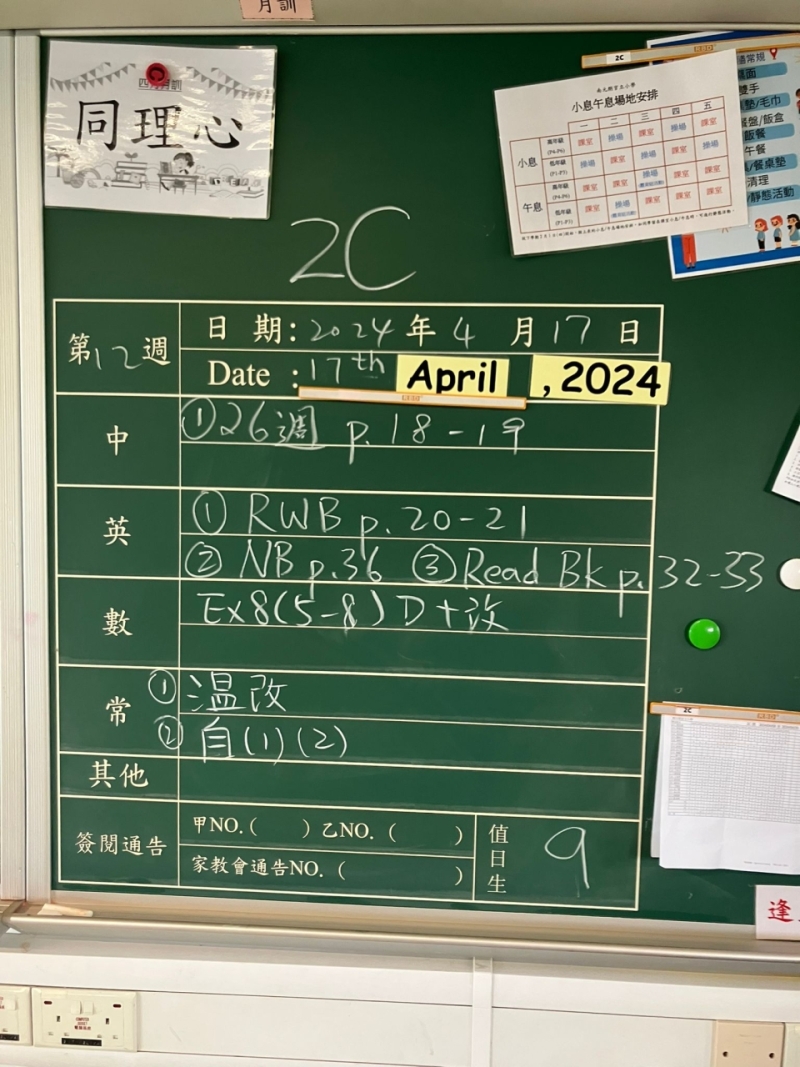 月訓
四月月訓
同理心
2C
小息午息場地安排
一 二 三 四 五
小息 高年級 (P4-P6) 課室 操場 課室 操場 課室
低年級 (P1-P3) 操場 課室 操場 課室 操場
午息 高年級 (P4-P6) 課室 課室 操場 課室 課室
低年級 (P1-P3) 課室 操場 課室 課室 課室
常規
桌面
雙手
墊/毛巾
餐盤/飯盒
飯餐
午餐
/餐桌墊
清理
/靜態活動
2C
第12週
日期:2024年4月17日
Date :17th April , 2024
中 ①26週 p.18-19
英 ① RWB p.20-21
② NB p.36 ③Read Bk p.32-33
數 Ex8(5-8)D+改
常 ①溫改
②自(1)(2)
其他
簽閱通告 甲NO.( ) 乙NO. ( )
家教會通告NO. ( )
值日生 9
2C
逢